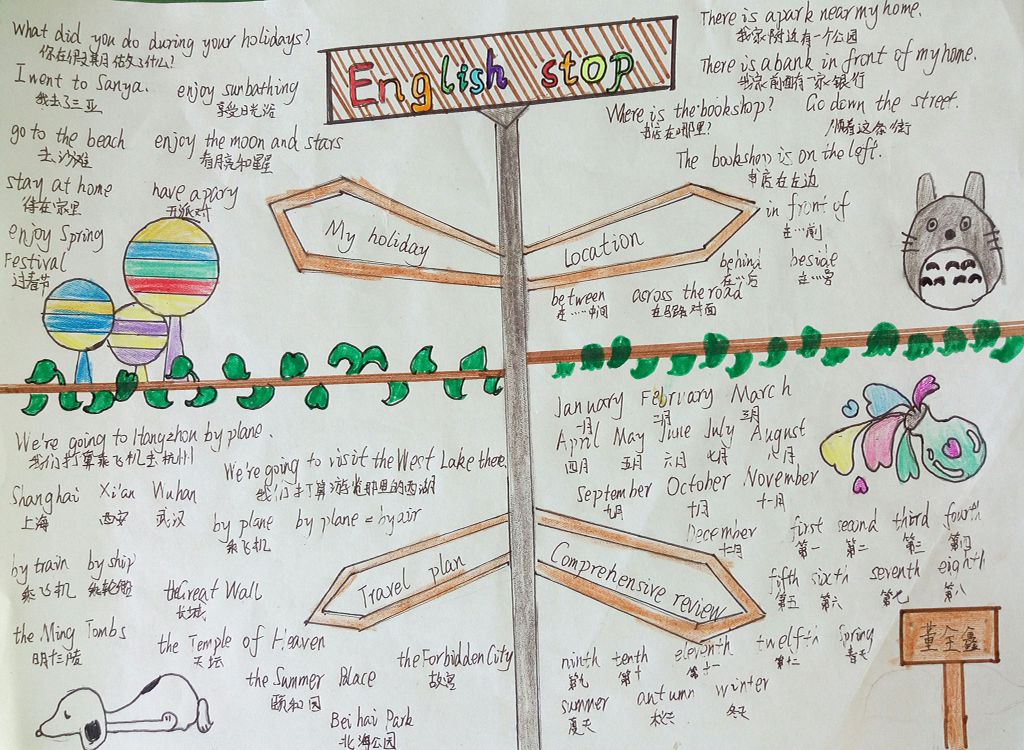 English stop
What did you do during your holidays?
你在假期里做了什么?
I went to Sanya.
我去了三亚
enjoy sunbathing
享受日光浴
go to the beach
去沙滩
enjoy the moon and stars
看月亮和星星
stay at home
待在家里
have a pary
开派对
enjoy Spring
Festival
过春节
My holiday
There is a park near my home.
我家附近有一个公园
There is a bank in front of my home.
我家前面有一家银行
Where is the bookshop?
书店在哪里?
Go down the street.
顺着这条街
The bookshop is on the left.
书店在左边
Location
in front of
在…前
behind
在…后
beside
在…旁
between
在……中间
across the road
在马路对面
We're going to Hangzhon by plane.
我们打算乘飞机去杭州
We're going to visit the West Lake there.
我们打算游览那里的西湖
Shanghai Xi'an Wuhan
上海 西安 武汉
by plane by plane = by air
乘飞机
by train by ship
乘飞机 乘轮船
the Great Wall
长城
Travel plan
the Ming Tombs
明十三陵
the Temple of Heaven
天坛
the Forbidden City
故宫
the Summer Palace
颐和园
Bei hai Park
北海公园
January February March
一月 二月 三月
April May June July August
四月 五月 六月 七月 八月
September October November
九月 十月 十一月
December
十月
first second third fourth
第一 第二 第三 第四
fifth sixth seventh eighth
第五 第六 第七 第八
Comprehensive review
ninth tenth eleventh twelfth spring
第九 第十 第十一 第十二 春天
summer autumn winter
夏天 秋天 冬天
董金鑫